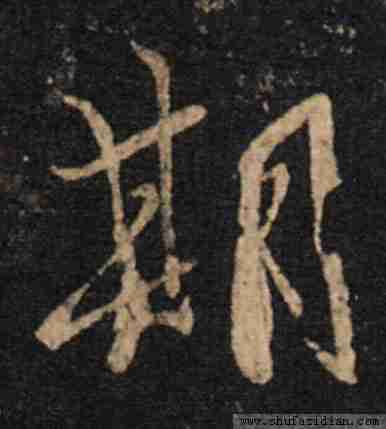 期
www.shufazidian.com